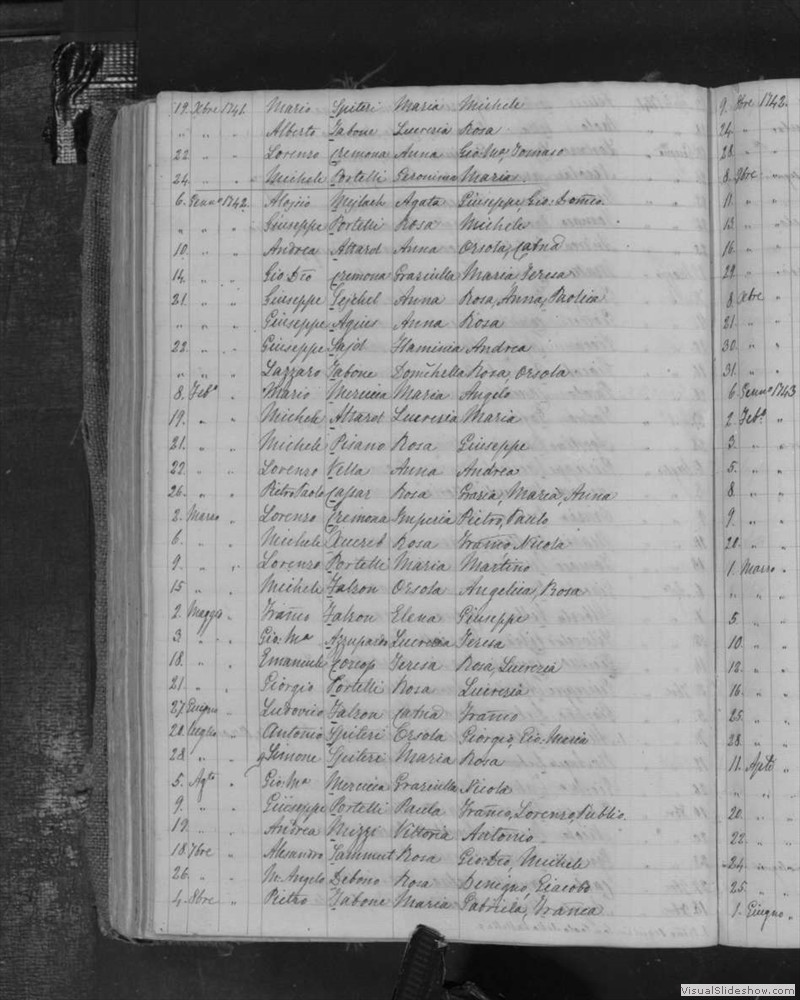 19. Xbre 1741. Mario Spiteri Maria Michele
" " " Alberto Zabone Lucresia Rosa
22. " " Lorenzo Cremona Anna Gio: Ma, Tomaso
24. " " Michele Portelli Geronima Maria
6. Genno 1742. Aloisio Mejlach Agata Giuseppe Gio: Domco.
" " " Giuseppe Portelli Rosa Michele
10. " " Andrea Attard Anna Orsola, Catna
14. " " Gio Dco Cremona Grasiulla Maria Teresa
21. " " Giuseppe Anna Rosa, Anna, Paolica
" " " Giuseppe Agius Anna Rosa
22. " " Giuseppe Sajd Flaminia Andrea
" " " Lazzaro Zabone Domchella Rosa, Orsola
8. Feb° " Mario Mercieca Maria Angelo
19. " " Michele Attard Lucresia Maria
21. " " Michele Pisano Rosa Giuseppe
22. " " Lorenzo Villa Anna Andrea
26. " " Pietro Paolo Cassar Rosa Grasia, Maria, Anna
2. Marzo " Lorenzo Cremona Imperia Pietro, Paulo
6. " " Michele Xuereb Rosa Franco Nicola
9. " " Lorenzo Portelli Maria Martino
15 " " Michele Falzon Orsola Angelica, Rosa
2. Maggio " Franco Falzon Elena Giuseppe
3 " " Gio: Ma Azzupardo Lucresia Teresa
18. " " Emanuele Teresa Rosa, Lucresia
21. " " Giorgio Portelli Rosa Lucresia
27. Giugno " Ludovico Falzon Catna Franco
20. Luglio " Antonio Spiteri Orsola Giorgio, Gio: Maria
28. " " Simone Spiteri Maria Rosa
5. Agto " Gio: Ma Mercieca Grasiulla Nicola
9. " " Giuseppe Portelli Paula Franco, Lorenzo, Publio.
19. " " Andrea Mizzi Vittoria Antonio
18. 7bre " Alesandro Sammut Rosa Gio: Dco, Michele
26. " " M. Angelo Debono Rosa Benigno, Giacobo
4. 8bre " Pietro Zabone Maria Gabriela, Franca
9. 8bre 1742.
24. " "
28. " "
8. 9bre "
11. " "
13. " "
16. " "
22. " "
8. Xbre "
21. " "
30. " "
31. " "
6. Genno 1743
2. Feb° "
3. " "
5. " "
8. " "
9. " "
20. " "
1. Marzo "
" " "
5. " "
10. " "
12. " "
16. " "
25. " "
28. " "
11. Aple "
" " "
20. " "
22. " "
24. " "
25. " "
1. Giugno "
VisualSlideshow.com